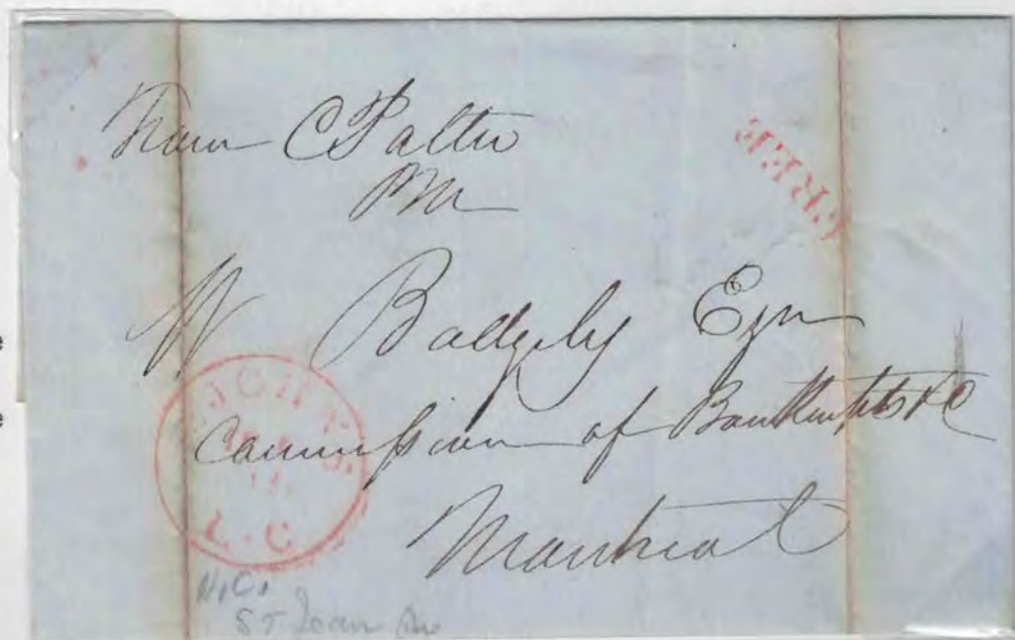 From C Pattu
PM
FREE
W Badgely Esqr
Commission of Bankrupts &c
Montreal
ST JOHNS
L.C
N.C.
ST Jean